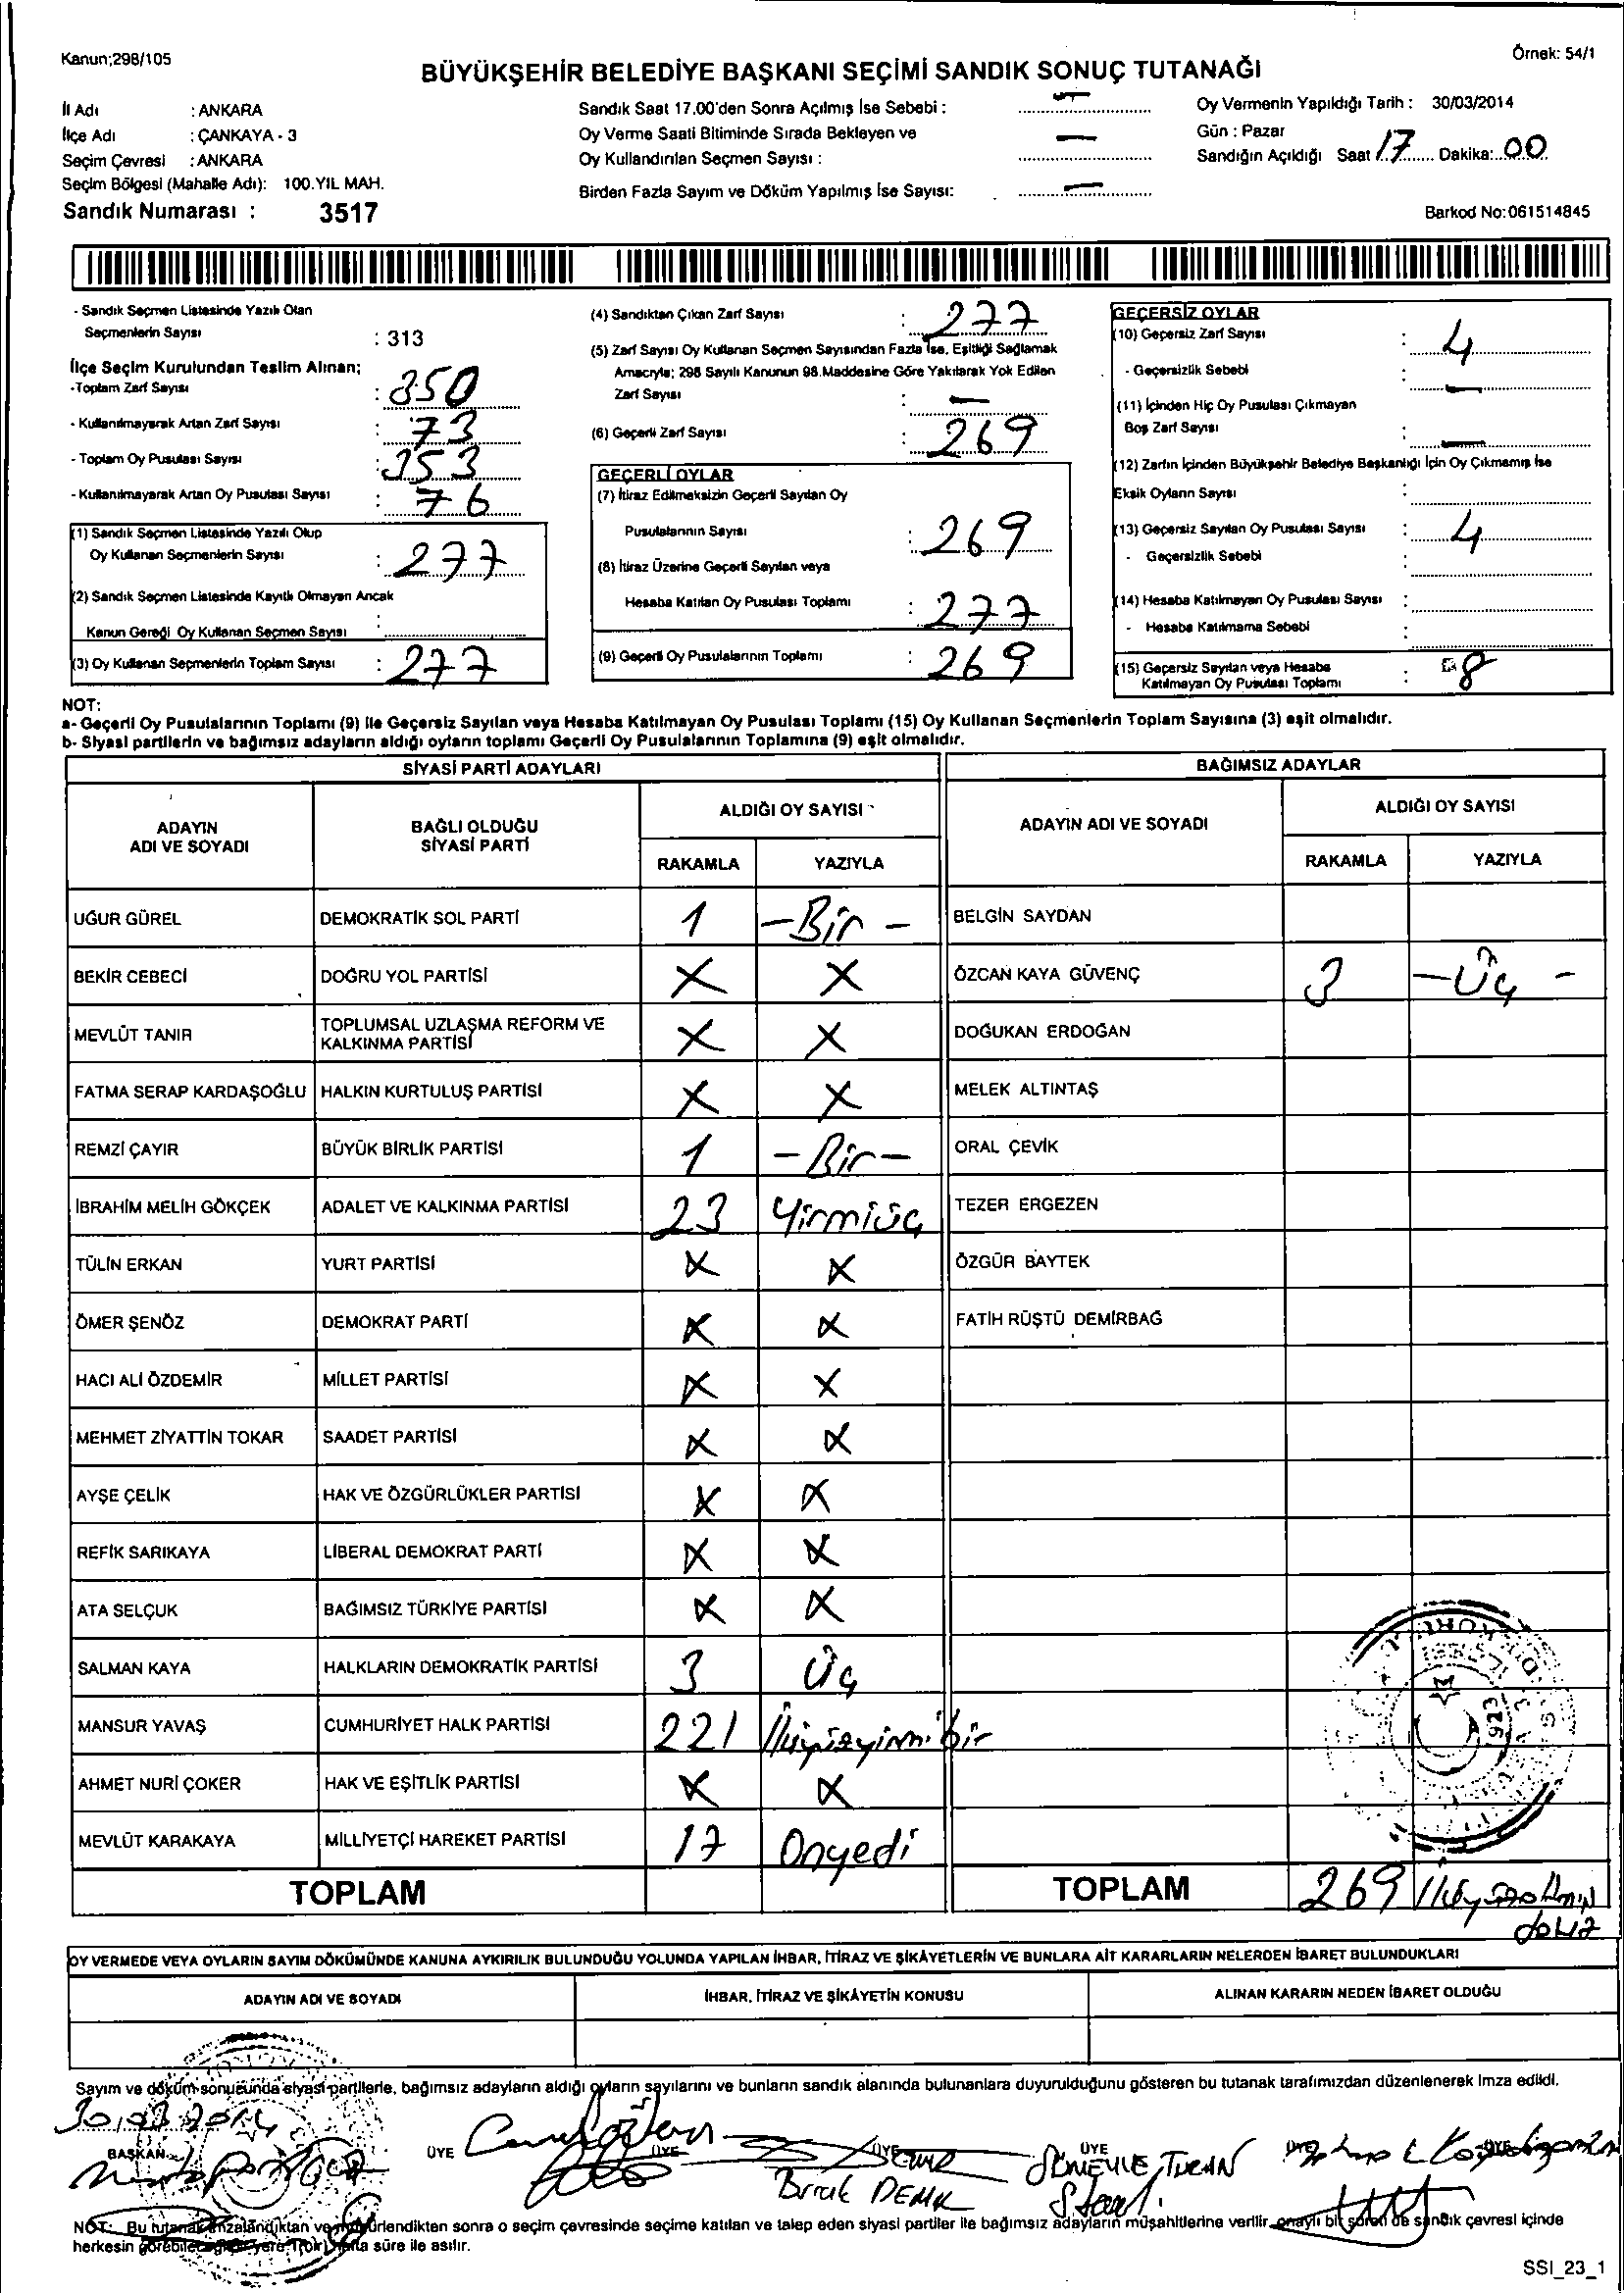 Kanun;298/105
Örnek: 54/1
BÜYÜKŞEHİR BELEDİYE BAŞKANI SEÇİMİ SANDIK SONUÇ TUTANAĞI
İl Adı : ANKARA
İlçe Adı : ÇANKAYA - 3
Seçim Çevresi : ANKARA
Seçim Bölgesi (Mahalle Adı): 100.YIL MAH.
Sandık Numarası : 3517
Sandık Saat 17.00'den Sonra Açılmış İse Sebebi : —
Oy Verme Saati Bitiminde Sırada Bekleyen ve
Oy Kullandırılan Seçmen Sayısı : —
Birden Fazla Sayım ve Döküm Yapılmış İse Sayısı: —
Oy Vermenin Yapıldığı Tarih : 30/03/2014
Gün : Pazar
Sandığın Açıldığı Saat 17 Dakika: 00
Barkod No:061514845
- Sandık Seçmen Listesinde Yazılı Olan
Seçmenlerin Sayısı : 313
İlçe Seçim Kurulundan Teslim Alınan;
-Toplam Zarf Sayısı : 350
- Kullanılmayarak Artan Zarf Sayısı : 73
- Toplam Oy Pusulası Sayısı : 353
- Kullanılmayarak Artan Oy Pusulası Sayısı : 76
(1) Sandık Seçmen Listesinde Yazılı Olup
Oy Kullanan Seçmenlerin Sayısı : 277
(2) Sandık Seçmen Listesinde Kayıtlı Olmayan Ancak
Kanun Gereği Oy Kullanan Seçmen Sayısı :
(3) Oy Kullanan Seçmenlerin Toplam Sayısı : 277
(4) Sandıktan Çıkan Zarf Sayısı : 277
(5) Zarf Sayısı Oy Kullanan Seçmen Sayısından Fazla İse, Eşitliği Sağlamak
Amacıyla; 298 Sayılı Kanunun 98.Maddesine Göre Yakılarak Yok Edilen
Zarf Sayısı : —
(6) Geçerli Zarf Sayısı : 269
GEÇERLİ OYLAR
(7) İtiraz Edilmeksizin Geçerli Sayılan Oy
Pusulalarının Sayısı : 269
(8) İtiraz Üzerine Geçerli Sayılan veya
Hesaba Katılan Oy Pusulası Toplamı : 277
(9) Geçerli Oy Pusulalarının Toplamı : 269
GEÇERSİZ OYLAR
(10) Geçersiz Zarf Sayısı : 4
- Geçersizlik Sebebi : —
(11) İçinden Hiç Oy Pusulası Çıkmayan
Boş Zarf Sayısı : —
(12) Zarfın İçinden Büyükşehir Belediye Başkanlığı İçin Oy Çıkmamış İse
Eksik Oyların Sayısı :
(13) Geçersiz Sayılan Oy Pusulası Sayısı : 4
- Geçersizlik Sebebi :
(14) Hesaba Katılmayan Oy Pusulası Sayısı :
- Hesaba Katılmama Sebebi :
(15) Geçersiz Sayılan veya Hesaba
Katılmayan Oy Pusulası Toplamı : 8
NOT:
a- Geçerli Oy Pusulalarının Toplamı (9) ile Geçersiz Sayılan veya Hesaba Katılmayan Oy Pusulası Toplamı (15) Oy Kullanan Seçmenlerin Toplam Sayısına (3) eşit olmalıdır.
b- Siyasi partilerin ve bağımsız adayların aldığı oyların toplamı Geçerli Oy Pusulalarının Toplamına (9) eşit olmalıdır.
SİYASİ PARTİ ADAYLARI
ADAYIN ADI VE SOYADI
BAĞLI OLDUĞU SİYASİ PARTİ
ALDIĞI OY SAYISI
RAKAMLA YAZIYLA
UĞUR GÜREL DEMOKRATİK SOL PARTİ 1 -Bir-
BEKİR CEBECİ DOĞRU YOL PARTİSİ X X
MEVLÜT TANIR TOPLUMSAL UZLAŞMA REFORM VE KALKINMA PARTİSİ X X
FATMA SERAP KARDAŞOĞLU HALKIN KURTULUŞ PARTİSİ X X
REMZİ ÇAYIR BÜYÜK BİRLİK PARTİSİ 1 -Bir-
İBRAHİM MELİH GÖKÇEK ADALET VE KALKINMA PARTİSİ 23 Yirmiüç
TÜLİN ERKAN YURT PARTİSİ X X
ÖMER ŞENÖZ DEMOKRAT PARTİ X X
HACI ALİ ÖZDEMİR MİLLET PARTİSİ X X
MEHMET ZİYATTİN TOKAR SAADET PARTİSİ X X
AYŞE ÇELİK HAK VE ÖZGÜRLÜKLER PARTİSİ X X
REFİK SARIKAYA LİBERAL DEMOKRAT PARTİ X X
ATA SELÇUK BAĞIMSIZ TÜRKİYE PARTİSİ X X
SALMAN KAYA HALKLARIN DEMOKRATİK PARTİSİ 3 Üç
MANSUR YAVAŞ CUMHURİYET HALK PARTİSİ 221 İkiyüzyirmibir
AHMET NURİ ÇOKER HAK VE EŞİTLİK PARTİSİ X X
MEVLÜT KARAKAYA MİLLİYETÇİ HAREKET PARTİSİ 17 Onyedi
TOPLAM
BAĞIMSIZ ADAYLAR
ADAYIN ADI VE SOYADI
ALDIĞI OY SAYISI
RAKAMLA YAZIYLA
BELGİN SAYDAN
ÖZCAN KAYA GÜVENÇ 3 -Üç-
DOĞUKAN ERDOĞAN
MELEK ALTINTAŞ
ORAL ÇEVİK
TEZER ERGEZEN
ÖZGÜR BAYTEK
FATİH RÜŞTÜ DEMİRBAĞ
TOPLAM 269
OY VERMEDE VEYA OYLARIN SAYIM DÖKÜMÜNDE KANUNA AYKIRILIK BULUNDUĞU YOLUNDA YAPILAN İHBAR, İTİRAZ VE ŞİKÂYETLERİN VE BUNLARA AİT KARARLARIN NELERDEN İBARET BULUNDUKLARI
ADAYIN ADI VE SOYADI
İHBAR, İTİRAZ VE ŞİKÂYETİN KONUSU
ALINAN KARARIN NEDEN İBARET OLDUĞU
Sayım ve döküm sonucunda siyasi partilerle, bağımsız adayların aldığı oyların sayılarını ve bunların sandık alanında bulunanlara duyurulduğunu gösteren bu tutanak tarafımızdan düzenlenerek imza edildi.
30.03.2014
BAŞKAN ÜYE ÜYE ÜYE ÜYE ÜYE
Burak DEMİR
NOT: Bu tutanak imzalandıktan ve mühürlendikten sonra o seçim çevresinde seçime katılan ve talep eden siyasi partiler ile bağımsız adayların müşahitlerine verilir onaylı bir sureti de sandık çevresi içinde
herkesin görebileceği bir yere 1(bir) hafta süre ile asılır.
SSI_23_1